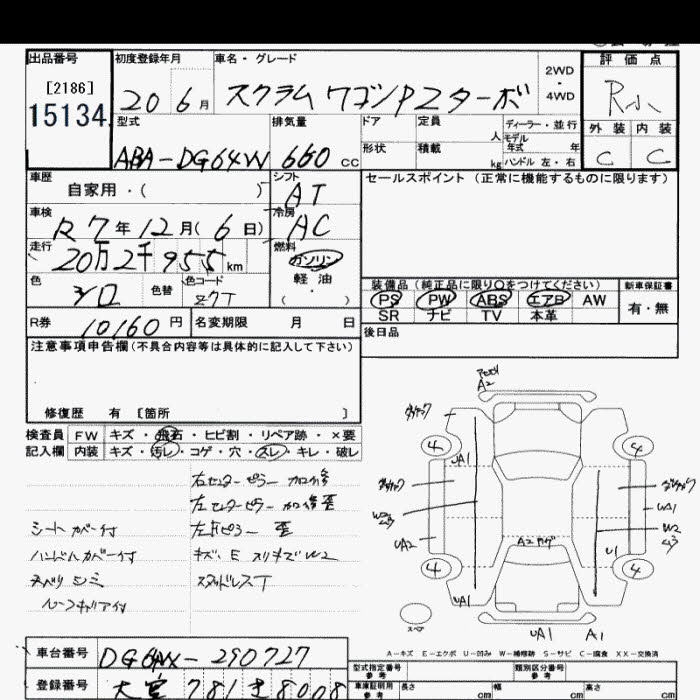 出品番号
[2186]
15134
初度登録年月
20 6月
車名・グレード
スクラムワゴンPZターボ
2WD
4WD
評価点
R小
外装 内装
C C
型式
ABA-DG64W
排気量
660 CC
ドア
定員 人
ディーラー・並行
モデル年式 年
形状
積載 kg
ハンドル 左・右
車歴
自家用・( )
シフト
AT
セールスポイント(正常に機能するものに限ります)
車検
R7年12月(6日)
冷房
AC
走行
20万2千955km
燃料
ガソリン
軽油
( ・ )
色
シロ
色替
色コード
Z7T
装備品(純正品に限り○をつけてください)
PS PW ABS エアB AW
SR ナビ TV 本革
新車保証書
有・無
R券 10160円
名変期限 月 日
後日品
注意事項申告欄(不具合内容等は具体的に記入して下さい)
修復歴 有 [箇所 ]
検査員記入欄
FW キズ・飛石・ヒビ割・リペア跡・×要
内装 キズ・汚レ・コゲ・穴・スレ・キレ・破レ
右センターピラー 加修
左センターピラー 加修歪
シートカバー付
左Fピラー 歪
ハンドルカバー付
キズ、E スリキズ W2
スタッドレスT
ルーフキャリア付
A2
4 4
UA1
UA1
W2
W2
UA2
A2
U1
4 4
UA1
スペア
UA1 A1
A-キズ E-エクボ U-凹み W-補修跡 S-サビ C-腐食 XX-交換済
車台番号 DG64W-290727
登録番号 大宮 781 き 8008
型式指定番号 参考
類別区分番号
車庫証明用 参考
長さ cm 幅 cm 高さ cm